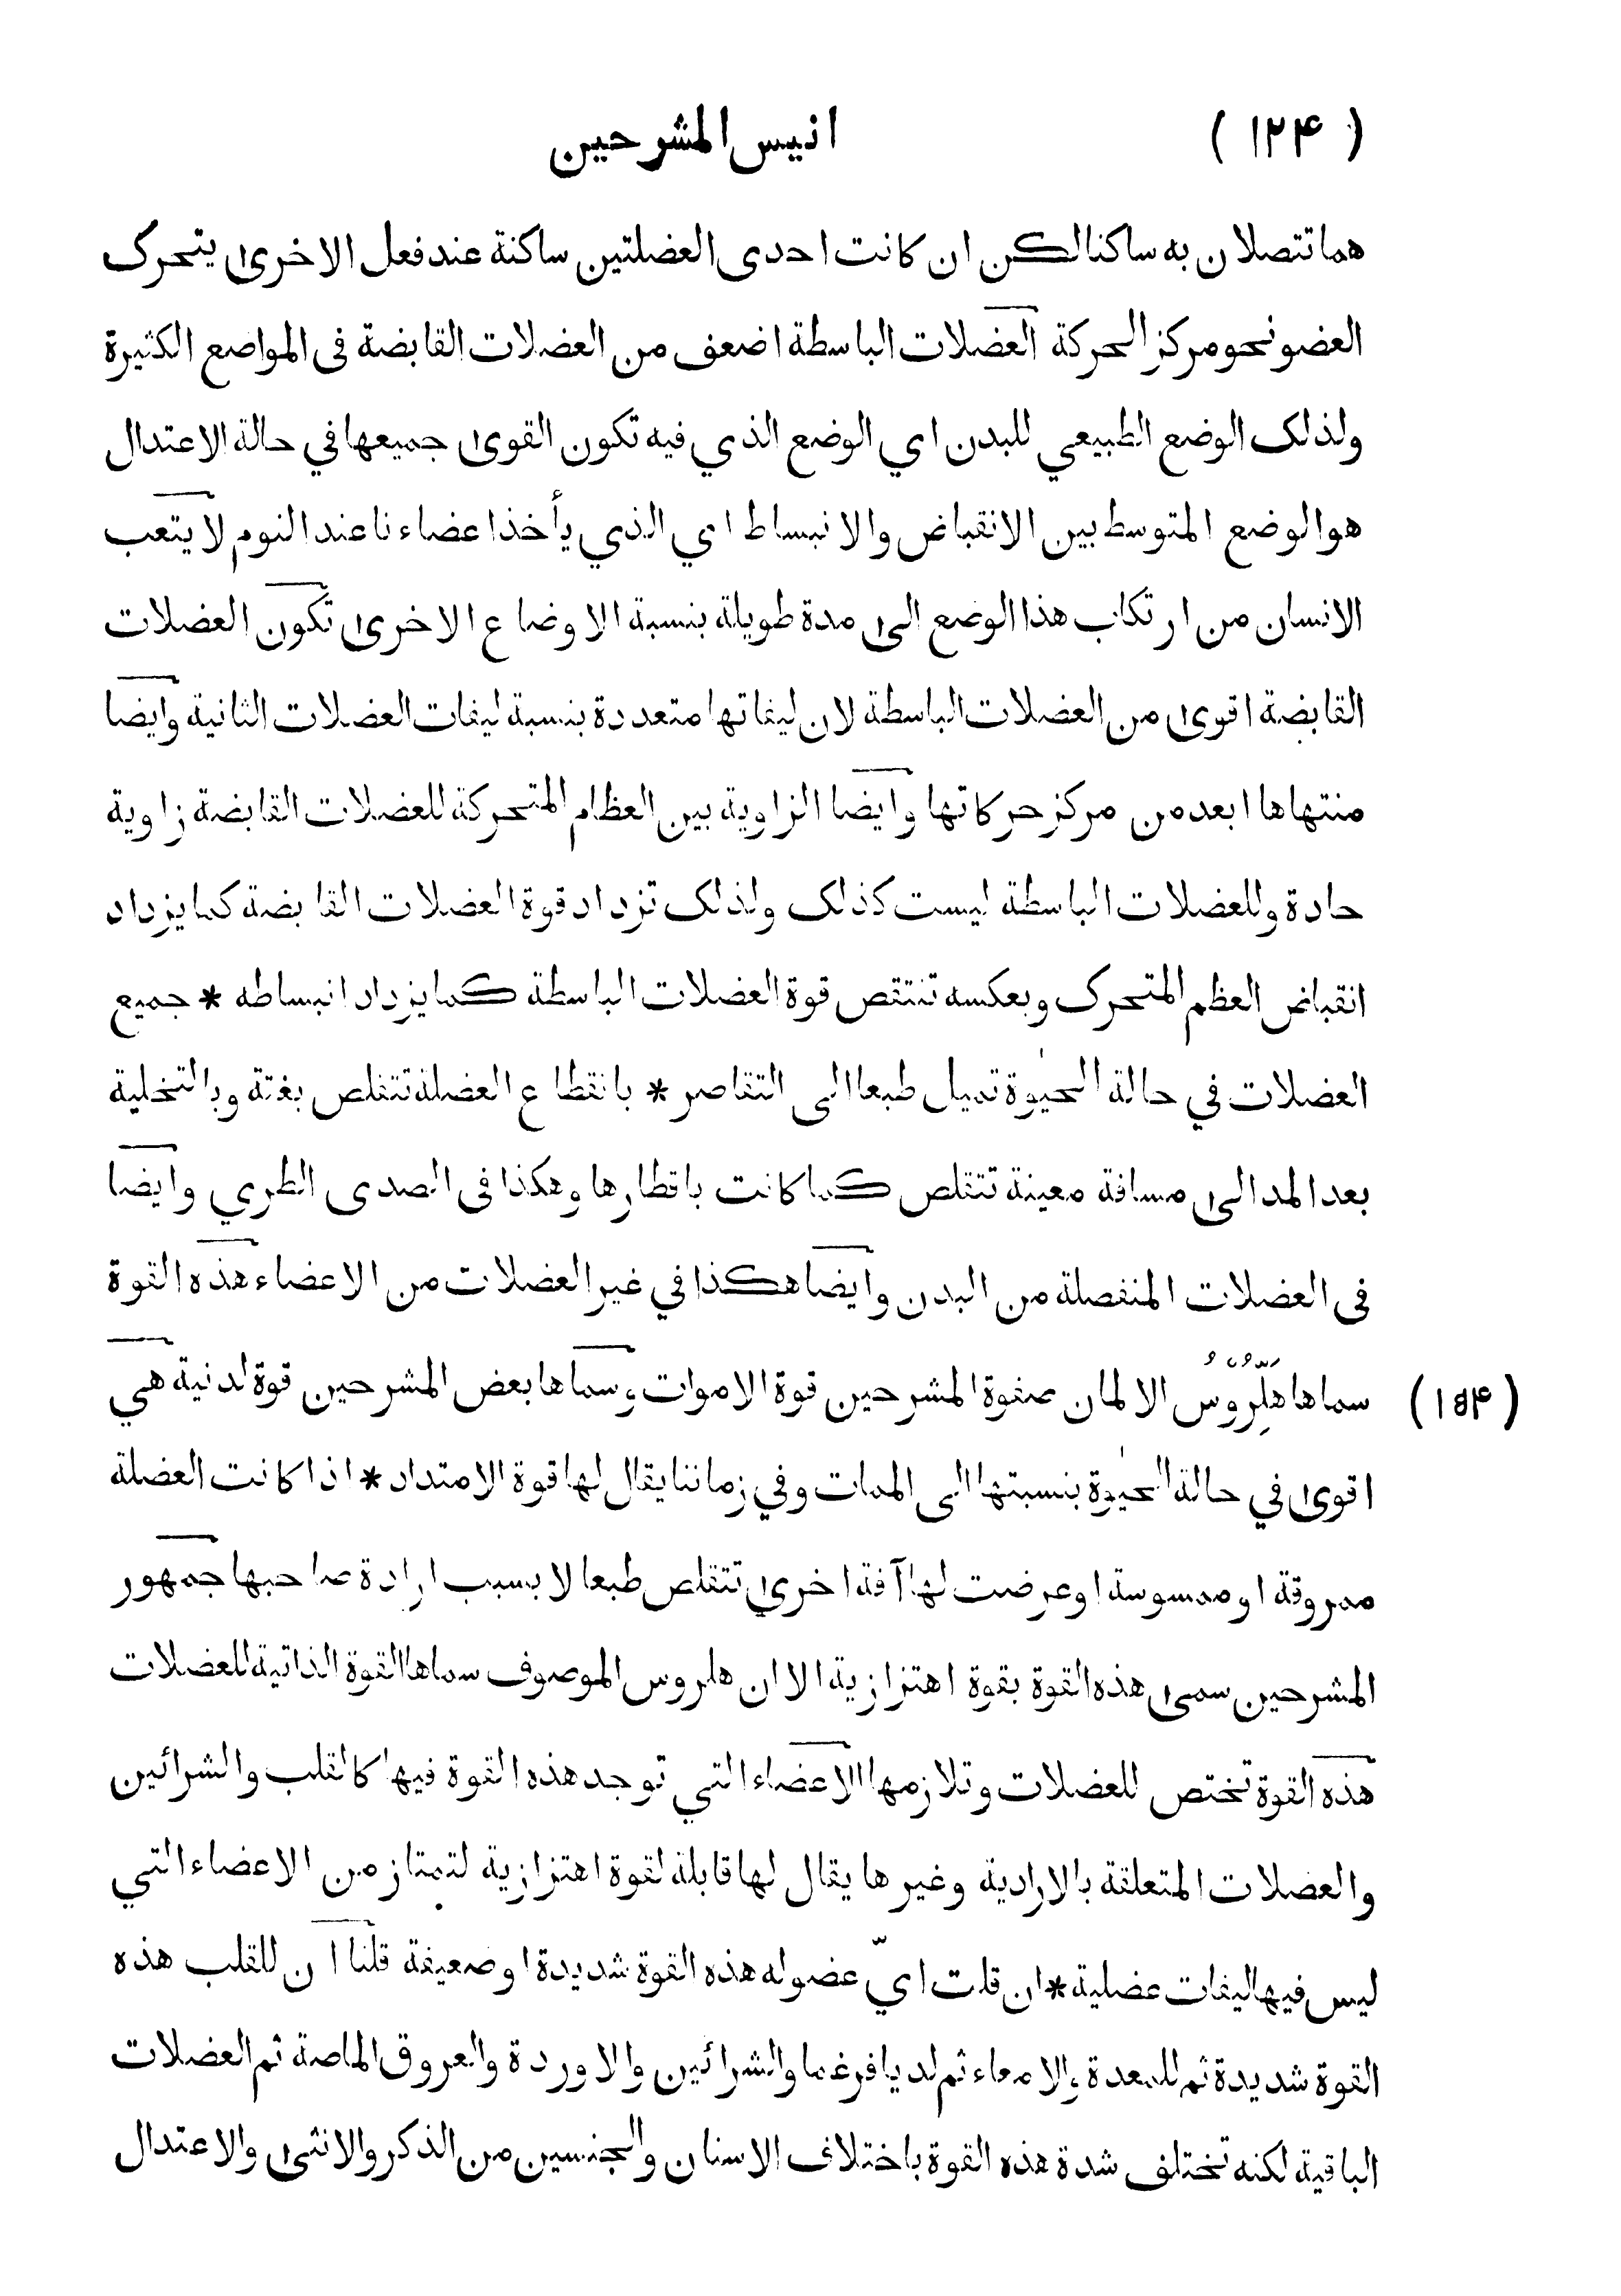 ( ١٢۴ ) انيس المشرحين
هما تتصلان به ساكنا لكن ان كانت احدى العضلتين ساكنة عند فعل الاخرى يتحرك
العضو نحو مركز الحركة العضلات الباسطة اضعف من العضلات القابضة فى المواضع الكثيرة
ولذلك الوضع الطبيعي للبدن اي الوضع الذي فيه تكون القوى جميعها في حالة الاعتدال
هو الوضع المتوسط بين الانقباض والانبساط اي الذي يأخذ اعضاء نا عند النوم لا يتعب
الانسان من ارتكاب هذا الوضع الى مدة طويلة بنسبة الاوضاع الاخرى تكون العضلات
القابضة اقوى من العضلات الباسطة لان ليفاتها متعددة بنسبة ليفات العضلات الثانية وايضا
منتهاها ابعد من مركز حركاتها وايضا الزاوية بين العظام المتحركة للعضلات القابضة زاوية
حادة وللعضلات الباسطة ليست كذلك ولذلك تزداد قوة العضلات القابضة كما يزداد
انقباض العظم المتحرك وبعكسه تنتقص قوة العضلات الباسطة كما يزداد انبساطه * جميع
العضلات في حالة الحيٰوة تميل طبعا الى التقاصر * بانقطاع العضلة تتقلص بغتة وبالتخلية
بعد المد الى مسافة معينة تتقلص كما كانت باقطارها وهكذا فى الصدى الطري وايضا
فى العضلات المنفصلة من البدن وايضا هكذا في غير العضلات من الاعضاء هذه القوة
سماها هلروس الالمان صفوة المشرحين قوة الاموات وسماها بعض المشرحين قوة لدنية هي ( ١٥۴ )
اقوى في حالة الحيٰوة بنسبتها الى الممات وفي زماننا يقال لها قوة الامتداد * اذا كانت العضلة
ممروقة او ممسوسة او عرضت لها آفة اخرى تتقلص طبعا لا بسبب ارادة صاحبها جمهور
المشرحين سمى هذه القوة بقوة اهتزازية الا ان هلروس الموصوف سماها القوة الذاتية للعضلات
هذه القوة تختص للعضلات وتلازمها الاعضاء التي توجد هذه القوة فيها كالقلب والشرائين
والعضلات المتعلقة بالارادية وغيرها يقال لها قابلة لقوة اهتزازية لتمتاز من الاعضاء التي
ليس فيها ليفات عضلية * ان قلت ايّ عضو له هذه القوة شديدة او ضعيفة قلنا ان للقلب هذه
القوة شديدة ثم للمعدة والامعاء ثم لديافرغما والشرائين والاوردة والعروق الماصة ثم العضلات
الباقية لكنه تختلف شدة هذه القوة باختلاف الاسنان والجنسين من الذكر والانثى والاعتدال